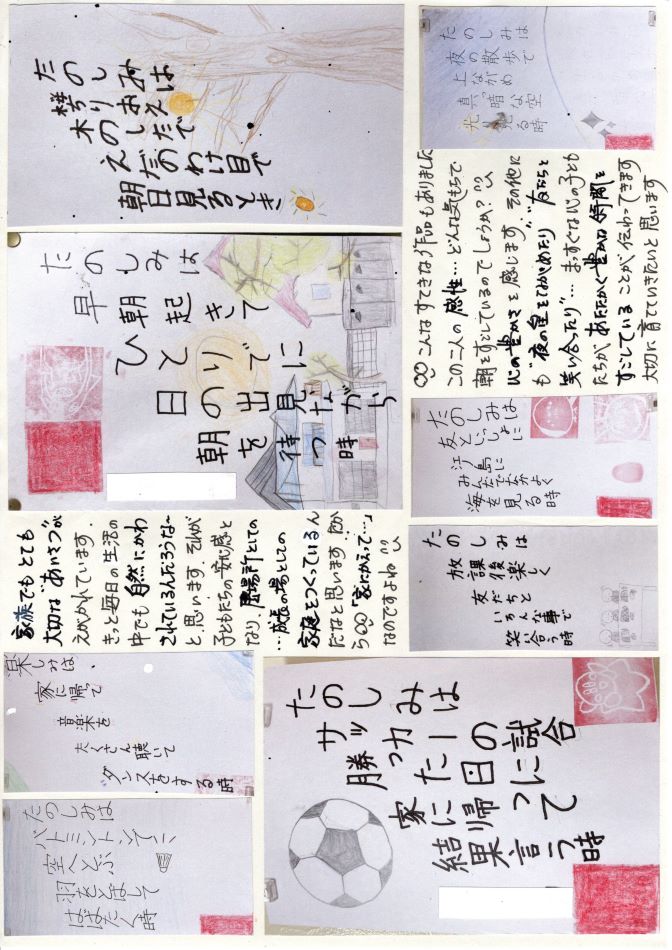 たのしみは
桜ちりおえ
木のしたで
えだのわけ目で
朝日見るとき
たのしみは
夜の散歩で
上ながめ
真っ暗な空
光見る時
こんなすてきな作品もありました
この二人の感性…どんな気もちで
朝をすごしているのでしょうか？
心の豊かさを感じます。その他に
も"夜の星をながめたり""友だちと
笑い合たり"…まっすぐな心の子ども
たちが、あたたかく豊かな時間を
すごしていることが伝わってきます
大切に育てていきたいと思います
たのしみは
早朝起きて
ひとりでに
日の出見ながら
朝を待つ時
たのしみは
友といっしょに
江ノ島に
みんなで仲よく
海を見る時
たのしみは
放課後楽しく
友だちと
いろんな事で
笑い合う時
家族でもとても
大切な"あいさつ"が
えがかれています.
きっと毎日の生活の
中でも自然にかわ
されているんだろうな〜
と思います.それが
子どもたちの安心感と
なり、居場所としての
…成長の場としての
家庭をつくっているん
だなと思います.だか
ら「家にかえって…」
なのですよね
楽しみは、
家に帰って
音楽を
たくさん聴いて
ダンスをする時
たのしみは
サッカーの試合
勝った日に
家に帰って
結果言う時
たのしみは
バトミントンで
空へとぶ
羽をとばして
はばたく時